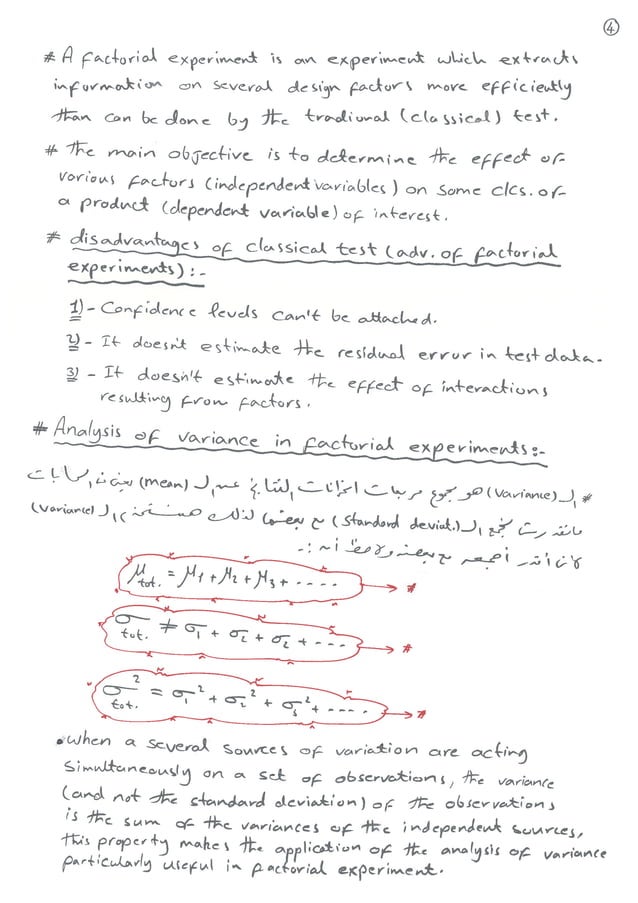 4
* A factorial experiment is an experiment which extracts
information on several design factors more efficiently
than can be done by the tradional (classical) test.
* The main objective is to determine the effect of
various factors (independent variables) on some ccs. of
a product (dependent variable) of interest.
* disadvantages of classical test (adv. of factorial
experiments) :-
1)- Confidence levels can't be attached.
2)- It doesn't estimate the residual error in test data.
3)- It doesn't estimate the effect of interactions
resulting from factors.
* Analysis of variance in factorial experiments:-
* الـ (Variance) هو مجموع مربعات انحرافات النتائج عن الـ (mean)
الـ (Standard deviat.) مع بعضها لذلك الـ (Variance)
لأن أقدر أجمعه مع بعضه ولاحظ أنه :-
μtot. = μ1 + μ2 + μ3 + ---- → *
σtot. ≠ σ1 + σ2 + σ2 + --- → *
σ²tot. = σ1² + σ2² + σ3² + ---- → *
• When a several sources of variation are acting
simultaneously on a set of observations, the variance
(and not the standard deviation) of the observations
is the sum of the variances of the independent sources,
this property makes the application of the analysis of variance
particularly useful in factorial experiment.